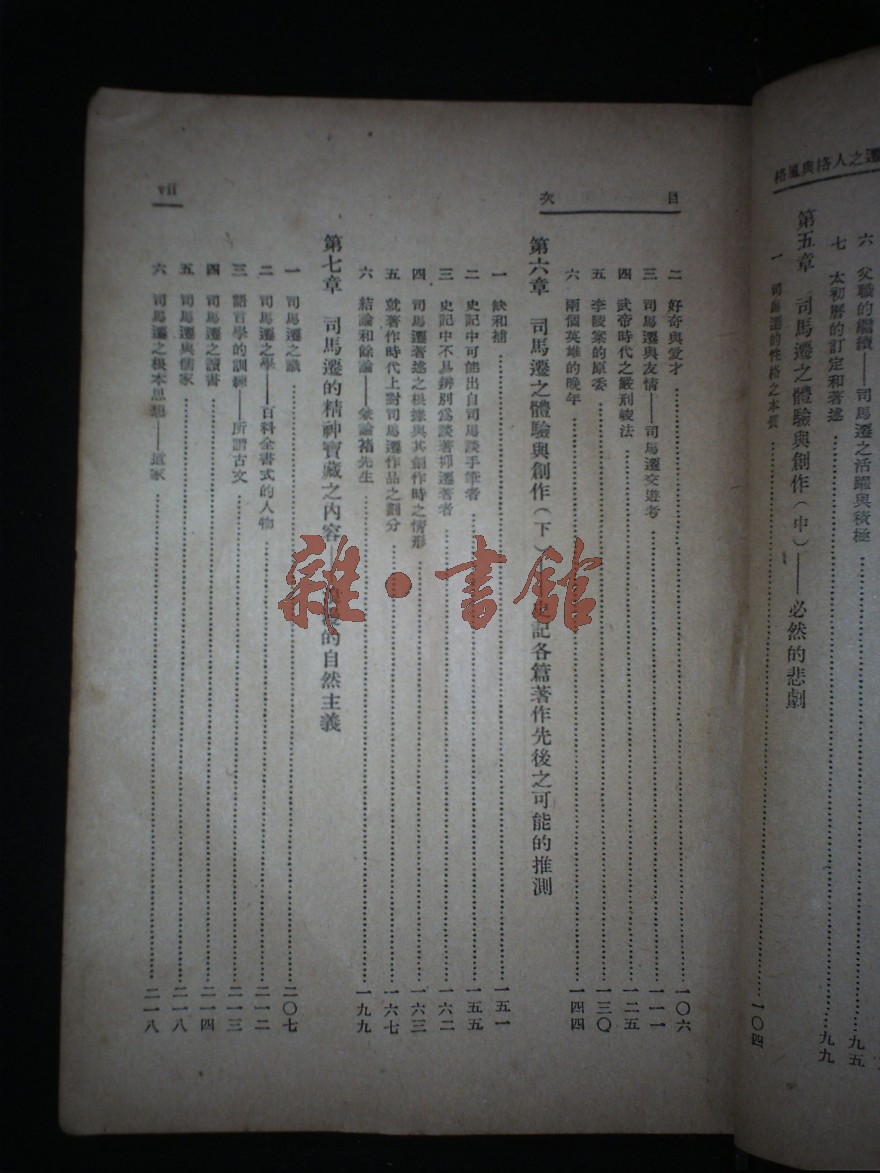 遷之人格與風格
六 父職的繼續——司馬遷之活躍與積極 九五
七 太初曆的訂定和著述 九九
第五章 司馬遷之體驗與創作(中)——必然的悲劇
一 司馬遷的性格之本質 一〇四
目 次
vii
二 好奇與愛才 一〇六
三 司馬遷與友情——司馬遷交遊考 一一一
四 武帝時代之嚴刑峻法 一二五
五 李陵案的原委 一三〇
六 兩個英雄的晚年 一四四
第六章 司馬遷之體驗與創作(下) 記各篇著作先後之可能的推測
一 缺和補 一五一
二 史記中可能出自司馬談手筆者 一五五
三 史記中不易辨別為談著抑遷著者 一六二
四 司馬遷著述之根據與其創作時之情形 一六三
五 就著作時代上對司馬遷作品之劃分 一六七
六 結論和餘論——兼論褚先生 一九九
第七章 司馬遷的精神寶藏之內容— 的自然主義
一 司馬遷之識 二〇七
二 司馬遷之學——百科全書式的人物 二一二
三 語言學的訓練——所謂古文 二一三
四 司馬遷之讀書 二一四
五 司馬遷與儒家 二一八
六 司馬遷之根本思想——道家 二一八
雜·書館